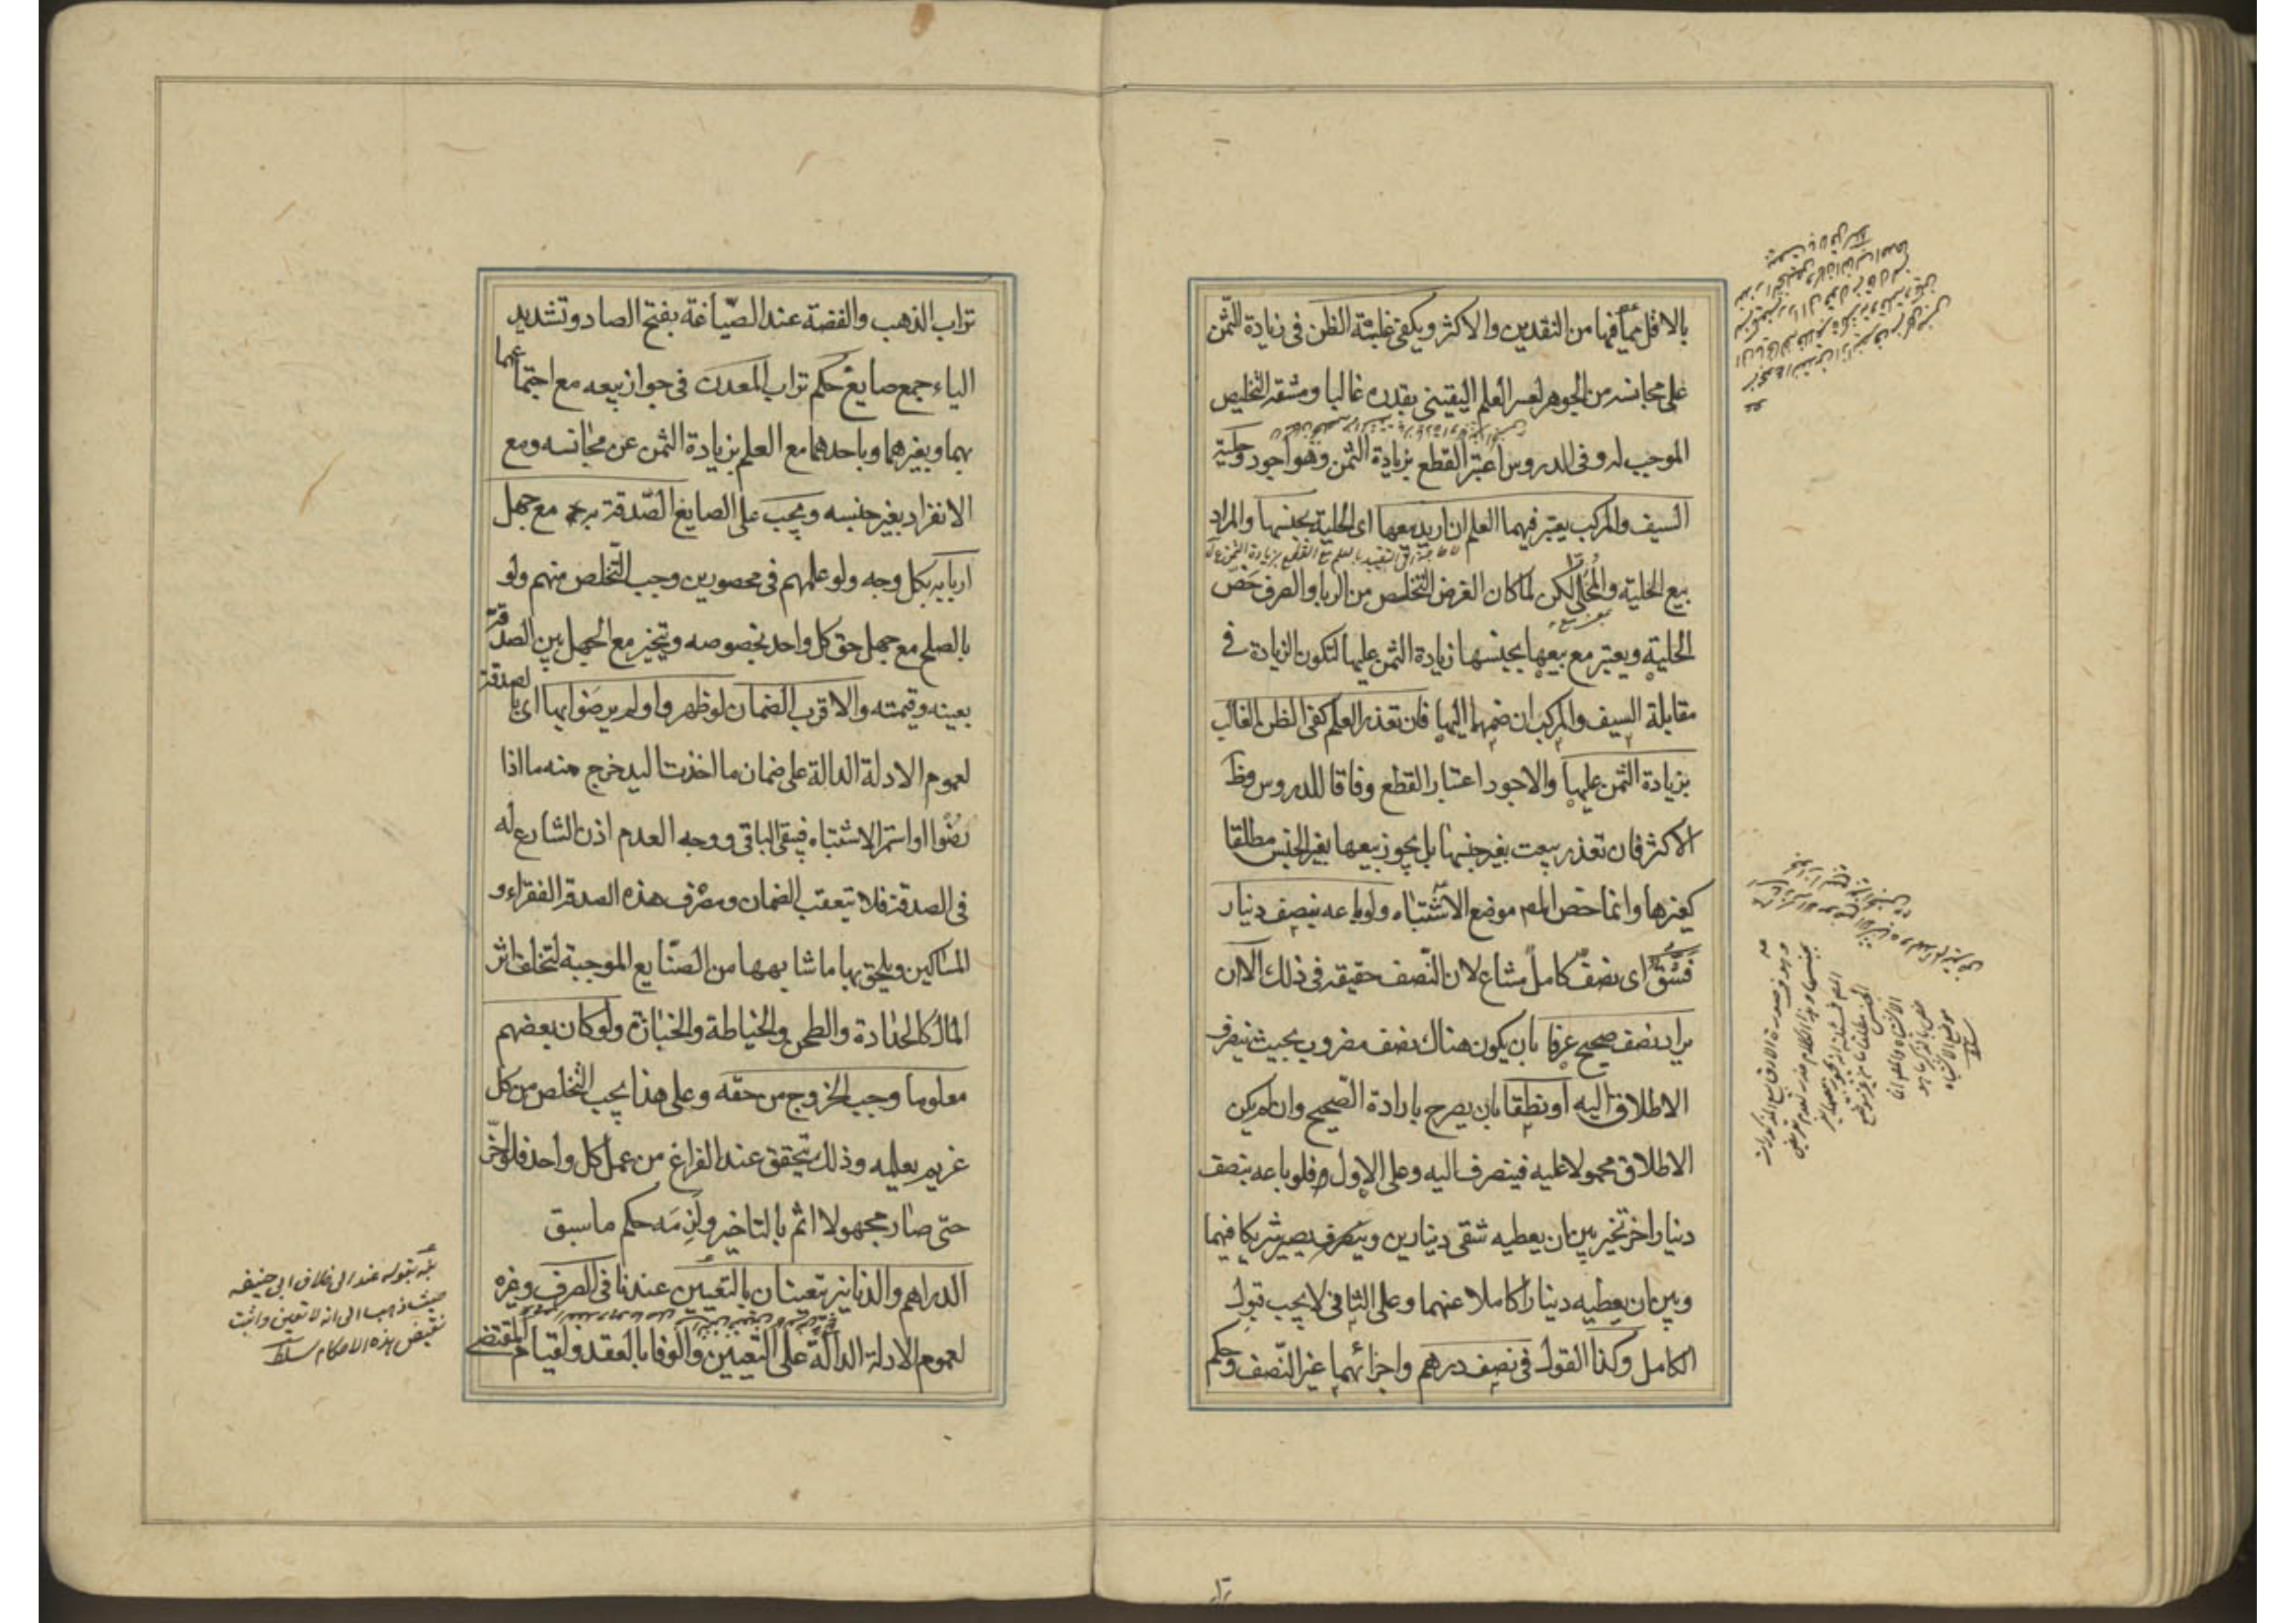 بالاقل مما فيها من النقدين والاكثر ويكفى غلبة الظن فى زيادة الثمن
على مجانسه من الجوهر لعسر العلم اليقينى بقدره غالبا ومشقة التخليص
الموجب له وفى الدروس اعتبر القطع بزيادة الثمن وهو اجود وحلية
السيف والمركب يعتبر فيهما العلم ان اريد بيعها اى الحلية بجنسها والمراد
بيع الحلية والمحلى لكن لما كان الغرض التخلص من الربا والصرف خص
الحلية ويعتبر مع بيعها بجنسها زيادة الثمن عليها لتكون الزيادة فى
مقابلة السيف والمركب ان ضمهما اليها فان تعذر العلم كفى الظن الغالب
بزيادة الثمن عليها والاجود اعتبار القطع وفاقا للدروس وظ
الاكثر فان تعذر بيعت بغير جنسها بل يجوز بيعها بغير الجنس مطلقا
كغيرها وانما خص المص موضع الاشتباه ولو باعه بنصف دينار
فشق اى نصف كامل مشاع لان النصف حقيقة فى ذلك الا ان
يراد نصف صحيح عرفا بان يكون هناك نصف مضروب بحيث ينصرف
الاطلاق اليه او نطقا بان يصرح بارادة الصحيح وان لم يكن
الاطلاق محمولا عليه فينصرف اليه وعلى الاول فلو باعه بنصف
دينار اخر تخير بين ان يعطيه شقى دينارين ويصير شريكا فيهما
وبين ان يعطيه دينارا كاملا عنهما وعلى الثانى لا يجب قبول
الكامل وكذا القول فى نصف درهم واجزائهما غير النصف وحكم
تراب الذهب والفضة عند الصياغة بفتح الصاد وتشديد
الياء جمع صايغ حكم تراب المعدن فى جواز بيعه مع اجتماعهما
بهما وبغيرهما وباحدهما مع العلم بزيادة الثمن عن مجانسه ومع
الانفراد بغير جنسه ويجب على الصايغ الصدقة به مع جهل
اربابه بكل وجه ولو علمهم فى محصورين وجب التخلص منهم ولو
بالصلح مع جهل حق كل واحد بخصوصه ويتخير مع الجهل بين الصدقة
بعينه وقيمته والاقرب الضمان لو ظهروا ولم يرضوا بها اى بالصدقة
لعموم الادلة الدالة على ضمان ما اخذت اليد خرج منه ما اذا
رضوا او استمر الاشتباه فيبقى الباقى ووجه العدم اذن الشارع له
فى الصدقة فلا يتعقب الضمان ومصرف هذه الصدقة الفقراء و
المساكين ويلحق بها ما شابهها من الصنايع الموجبة لتخلف اثر
المال كالحدادة والطحن والخياطة والخبازة ولو كان بعضهم
معلوما وجب الخروج من حقه وعلى هذا يجب التخلص من كل
غريم يعلمه وذلك يتحقق عند الفراغ من عمل كل واحد فلو اخر
حتى صار مجهولا اثم بالتاخير ولزمه حكم ما سبق
الدراهم والدنانير تتعينان بالتعيين عندنا فى الصرف وغيره
لعموم الادلة الدالة على التعيين والوفا بالعقد ولقيام المقتضى
نبه بقوله عندنا الى خلاف ابى حنيفه
حيث ذهب الى انه لا تعين واثبت
نقيض هذه الاحكام سلطا